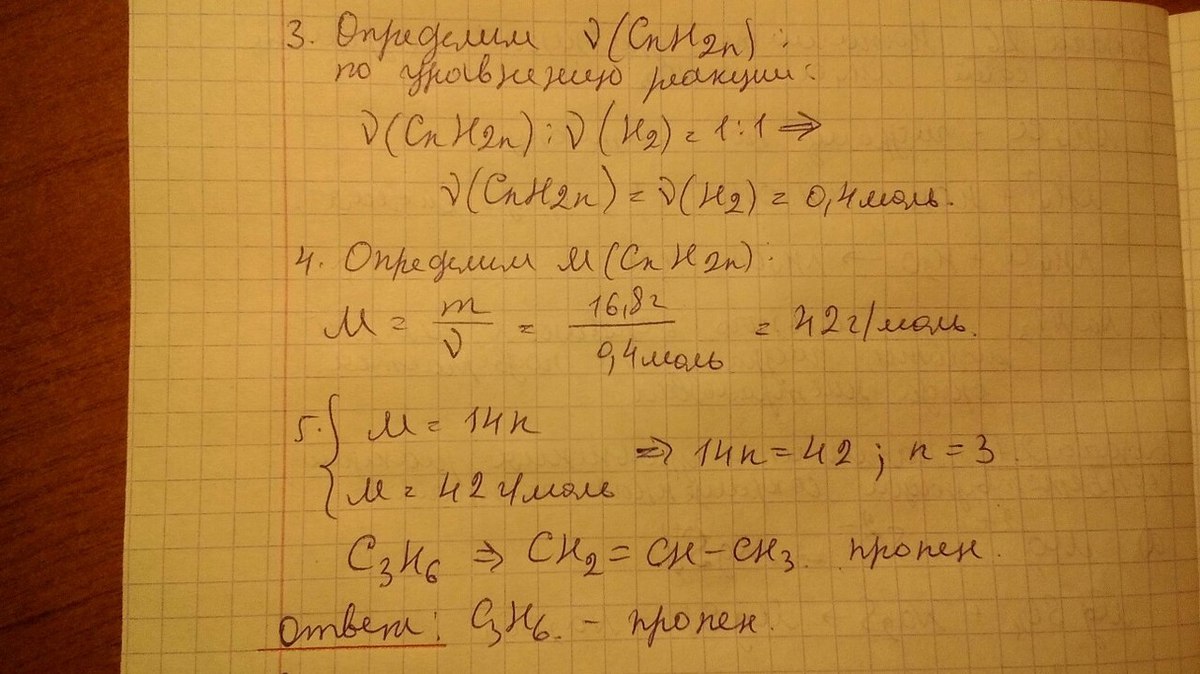 3. Определим ν(CnH2n):
по уравнению реакции:
ν(CnH2n) : ν(H2) = 1:1 ⇒
ν(CnH2n) = ν(H2) = 0,4 моль.
4. Определим M(CnH2n):
M = m/ν = 16,8г/0,4моль = 42г/моль.
5. { M = 14n
M = 42 г/моль
⇒ 14n = 42 ; n = 3.
C3H6 ⇒ CH2 = CH – CH3. пропен.
Ответ: C3H6. – пропен.